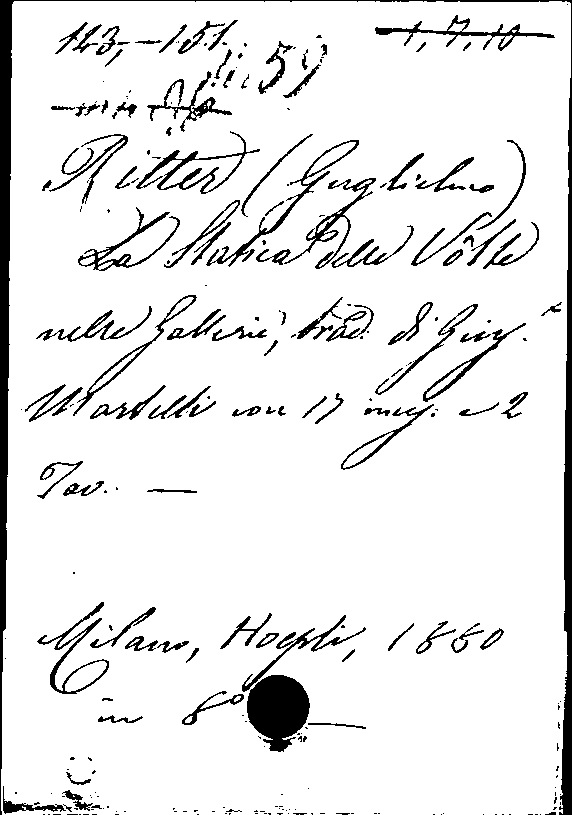 123,-151.
1, 7, 10
59
Ritter (Guglielmo)
La Statica delle Vôlte
nelle Gallerie, trad. di Giu.
Martelli con 17 inc. e 2
Tav. —
Milano, Hoepli, 1880
in 8° —